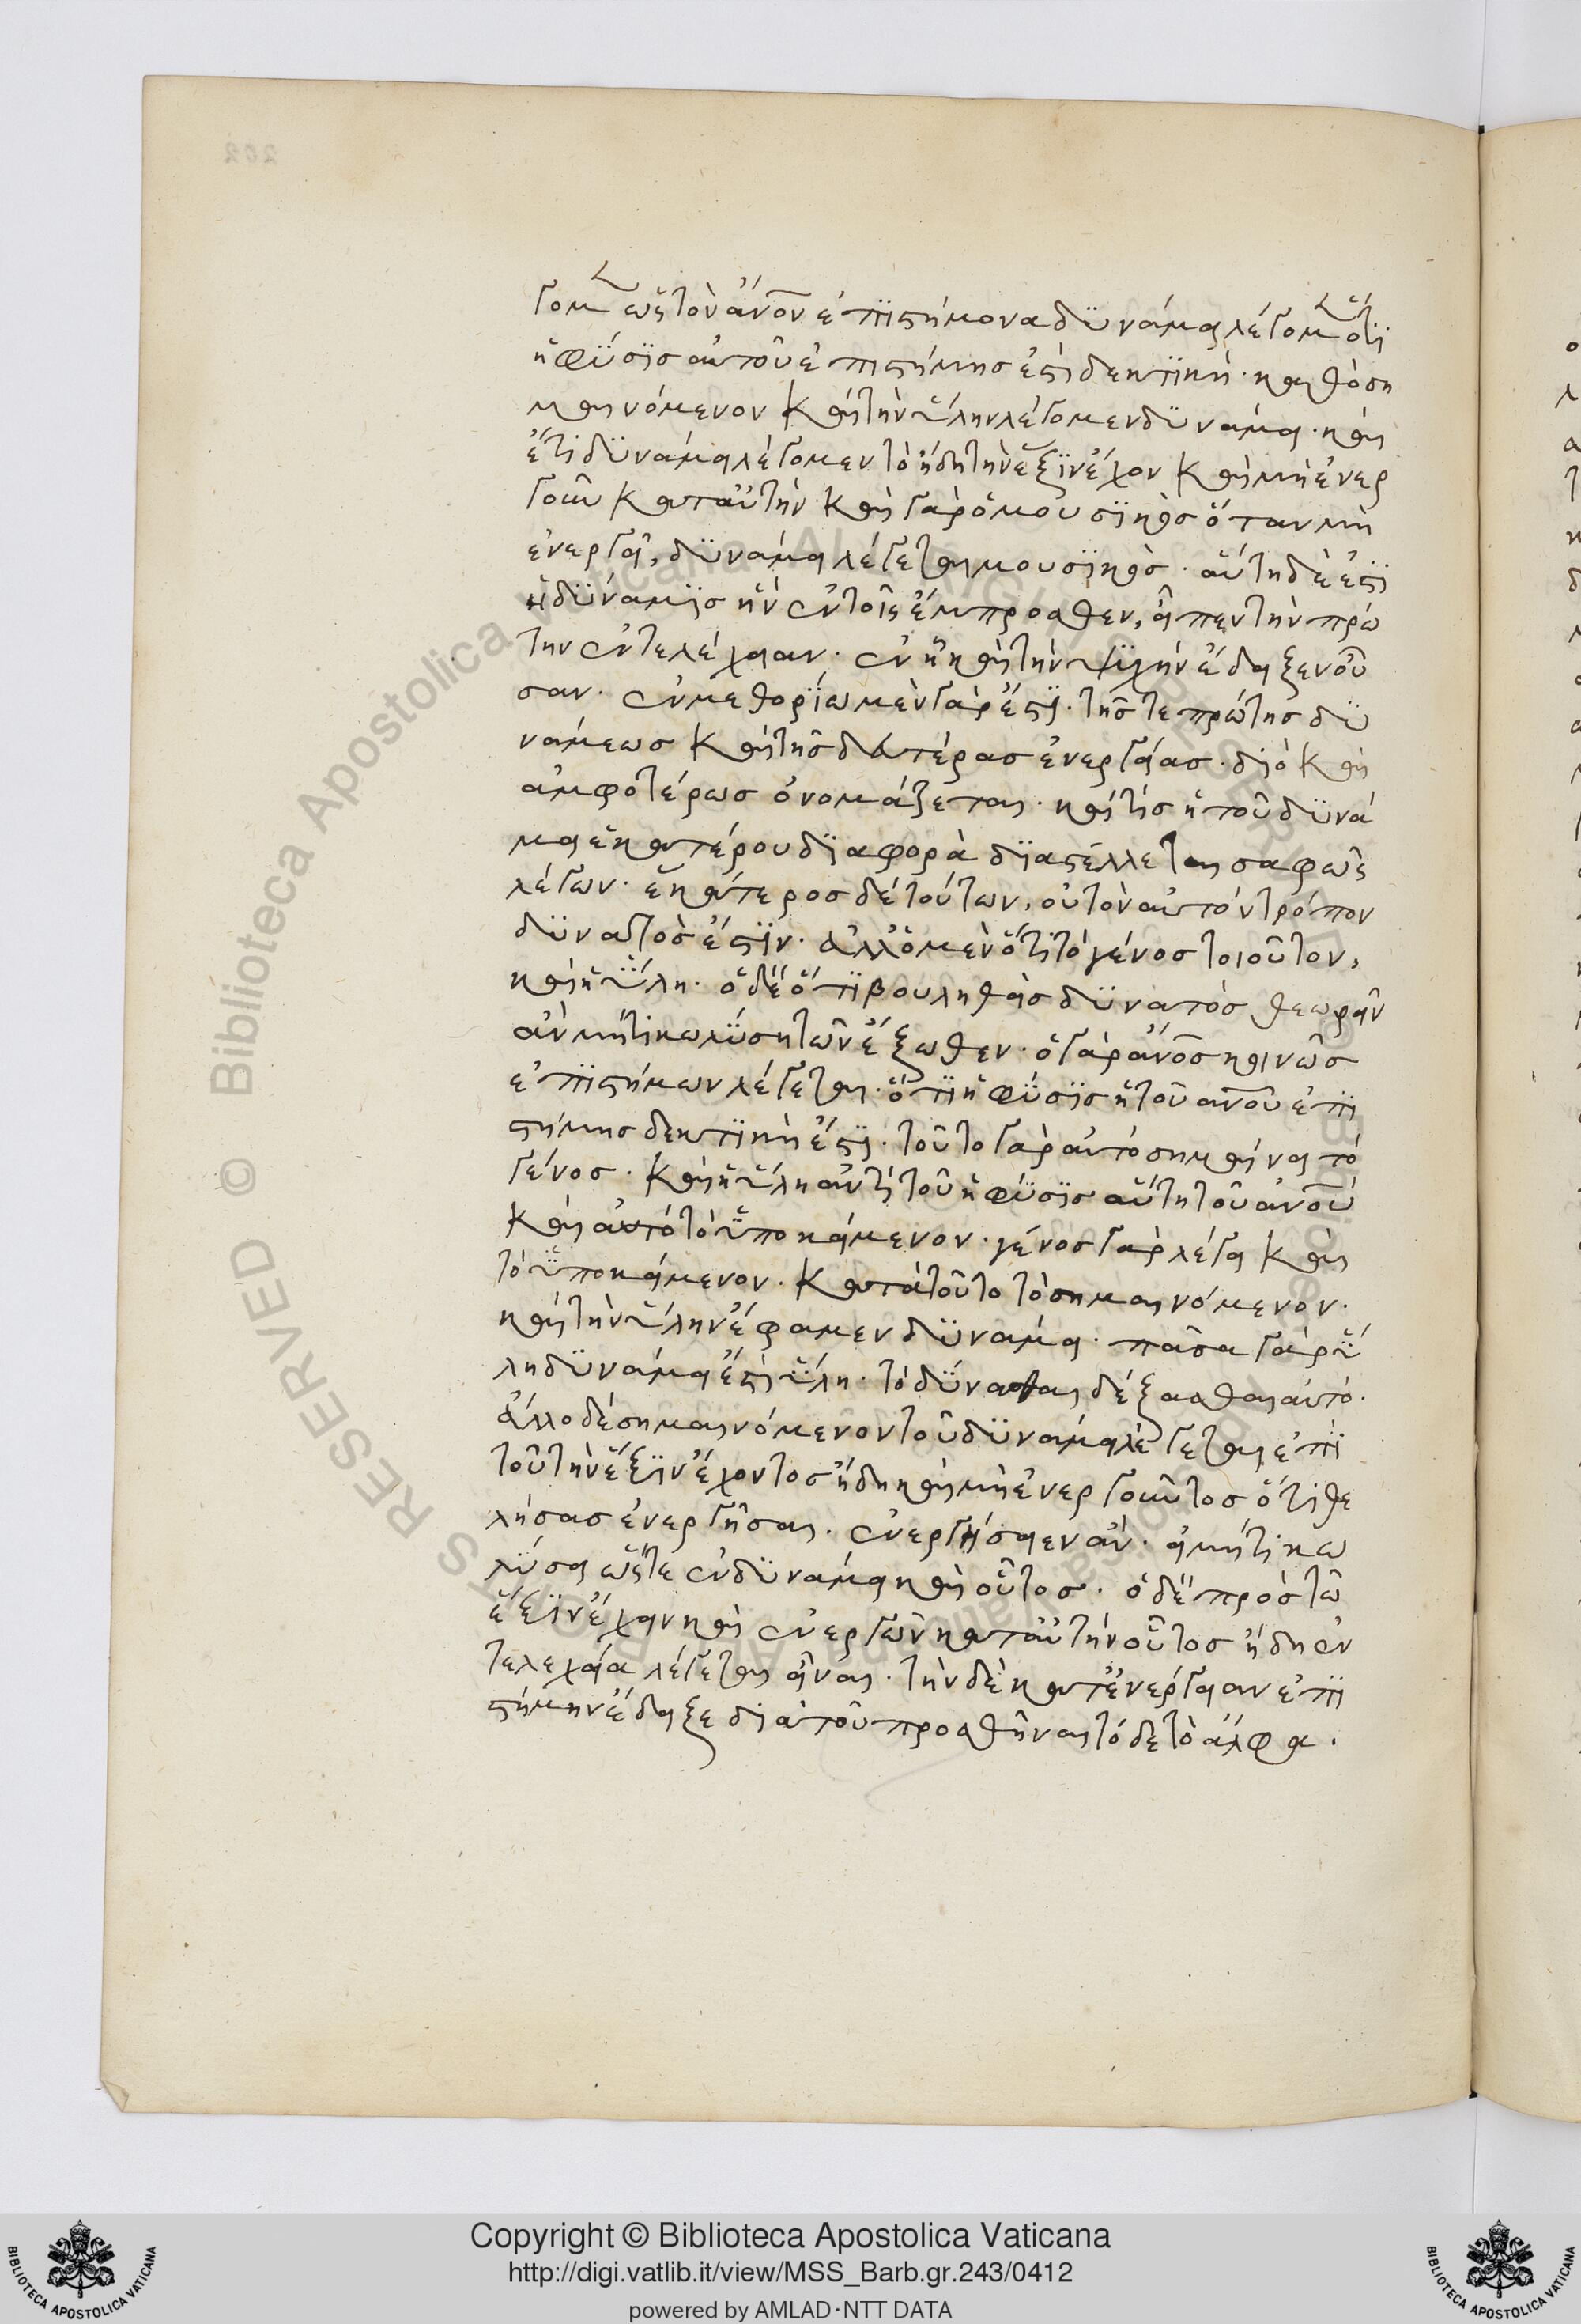 γομεν ὡς τὸν ἄνον ἐπιστήμονα δυνάμει λέγομεν ὅτι
ἡ φύσις αὐτοῦ ἐπιστήμης ἐστὶ δεκτική· καθὸ ση
μαινόμενον καὶ τὴν ὕλην λέγομεν δυνάμει· καὶ
ἔτι δυνάμει λέγομεν τὸ ἤδη τὴν ἕξιν ἔχον καὶ μὴ ἐνερ
γοῦν κατ αὐτήν καὶ γὰρ ὁ μουσικὸς ὅταν μὴ
ἐνεργεῖ, δυνάμει λέγεται μουσικὸς· αὕτη δὲ ἐστὶ
ἡ δύναμις ἣν ἐν τοῖς ἔμπροσθεν, εἶπεν τὴν πρώ
την ἐντελέχειαν· ἐν ᾗ καὶ τὴν ψυχὴν ἔδειξεν οὖ
σαν· ἐν μεθορίω μὲν γὰρ ἐστὶ· τῆς τε πρώτης δυ
νάμεως καὶ τῆς δευτέρας ἐνεργείας· διὸ καὶ
ἀμφοτέρως ὀνομάζεται· καὶ τίς ἡ τοῦ δυνά
μει ἑκατέρου διαφορὰ διαστέλλεται σαφῶς
λέγων· ἑκάτερος δὲ τούτων, οὐ τὸν αὐτόν τρόπον
δυνατὸς ἐστὶν· ἀλλ ὁ μὲν ὅτι τὸ γένος τοιοῦτον,
καὶ ἡ ὕλη· ὁ δὲ ὅτι βουληθεὶς δυνατὸς θεωρεῖν
ἀν μήτι κωλύση τῶν ἔξωθεν· ὁ γὰρ ἄνος κοινῶς
ἐπιστήμων λέγεται· ὅτι ἡ φύσις ἡ τοῦ ανου ἐπι
στήμης δεκτική ἐστὶ· τοῦτο γὰρ αὐτό σημαίνει τό
γένος· καὶ ἡ ὕλη ἀντὶ τοῦ ἡ φύσις αὕτη τοῦ ανου
καὶ αὐτό τὸ ὑποκείμενον· γένος γὰρ λέγει καὶ
τὸ ὑποκείμενον· κατὰ τοῦτο τὸ σημαινόμενον·
καὶ τὴν ὕλην ἔφαμεν δυνάμει· πᾶσα γὰρ ὕ
λη δυνάμει ἐστὶ ὕλη· τὸ δύνασθαι δέξασθαι αὐτό·
ἄλλο δὲ σημαινόμενον τοῦ δυνάμει λέγεται ἐπὶ
τοῦ τὴν ἕξιν ἔχοντος ἤδη καὶ μὴ ἐνεργοῦντος ὅτι θε
λήσας ἐνεργῆσαι· ἐνεργήσειεν ἀν· εἰ μήτι κω
λύσει ὥστε ἐν δυνάμει καὶ οὗτος· ὁ δὲ πρὸς τῶ
ἕξιν ἔχειν καὶ ἐνεργῶν κατ αὐτήν οὗτος ἤδη ἐν
τελεχεία λέγεται εἶναι· τὴν δὲ κατ ἐνέργειαν ἐπι
στήμην ἔδειξε διὰ τοῦ προσθῆναι τόδε τὸ ἄλφα.
Copyright © Biblioteca Apostolica Vaticana
http://digi.vatlib.it/view/MSS_Barb.gr.243/0412
powered by AMLAD·NTT DATA